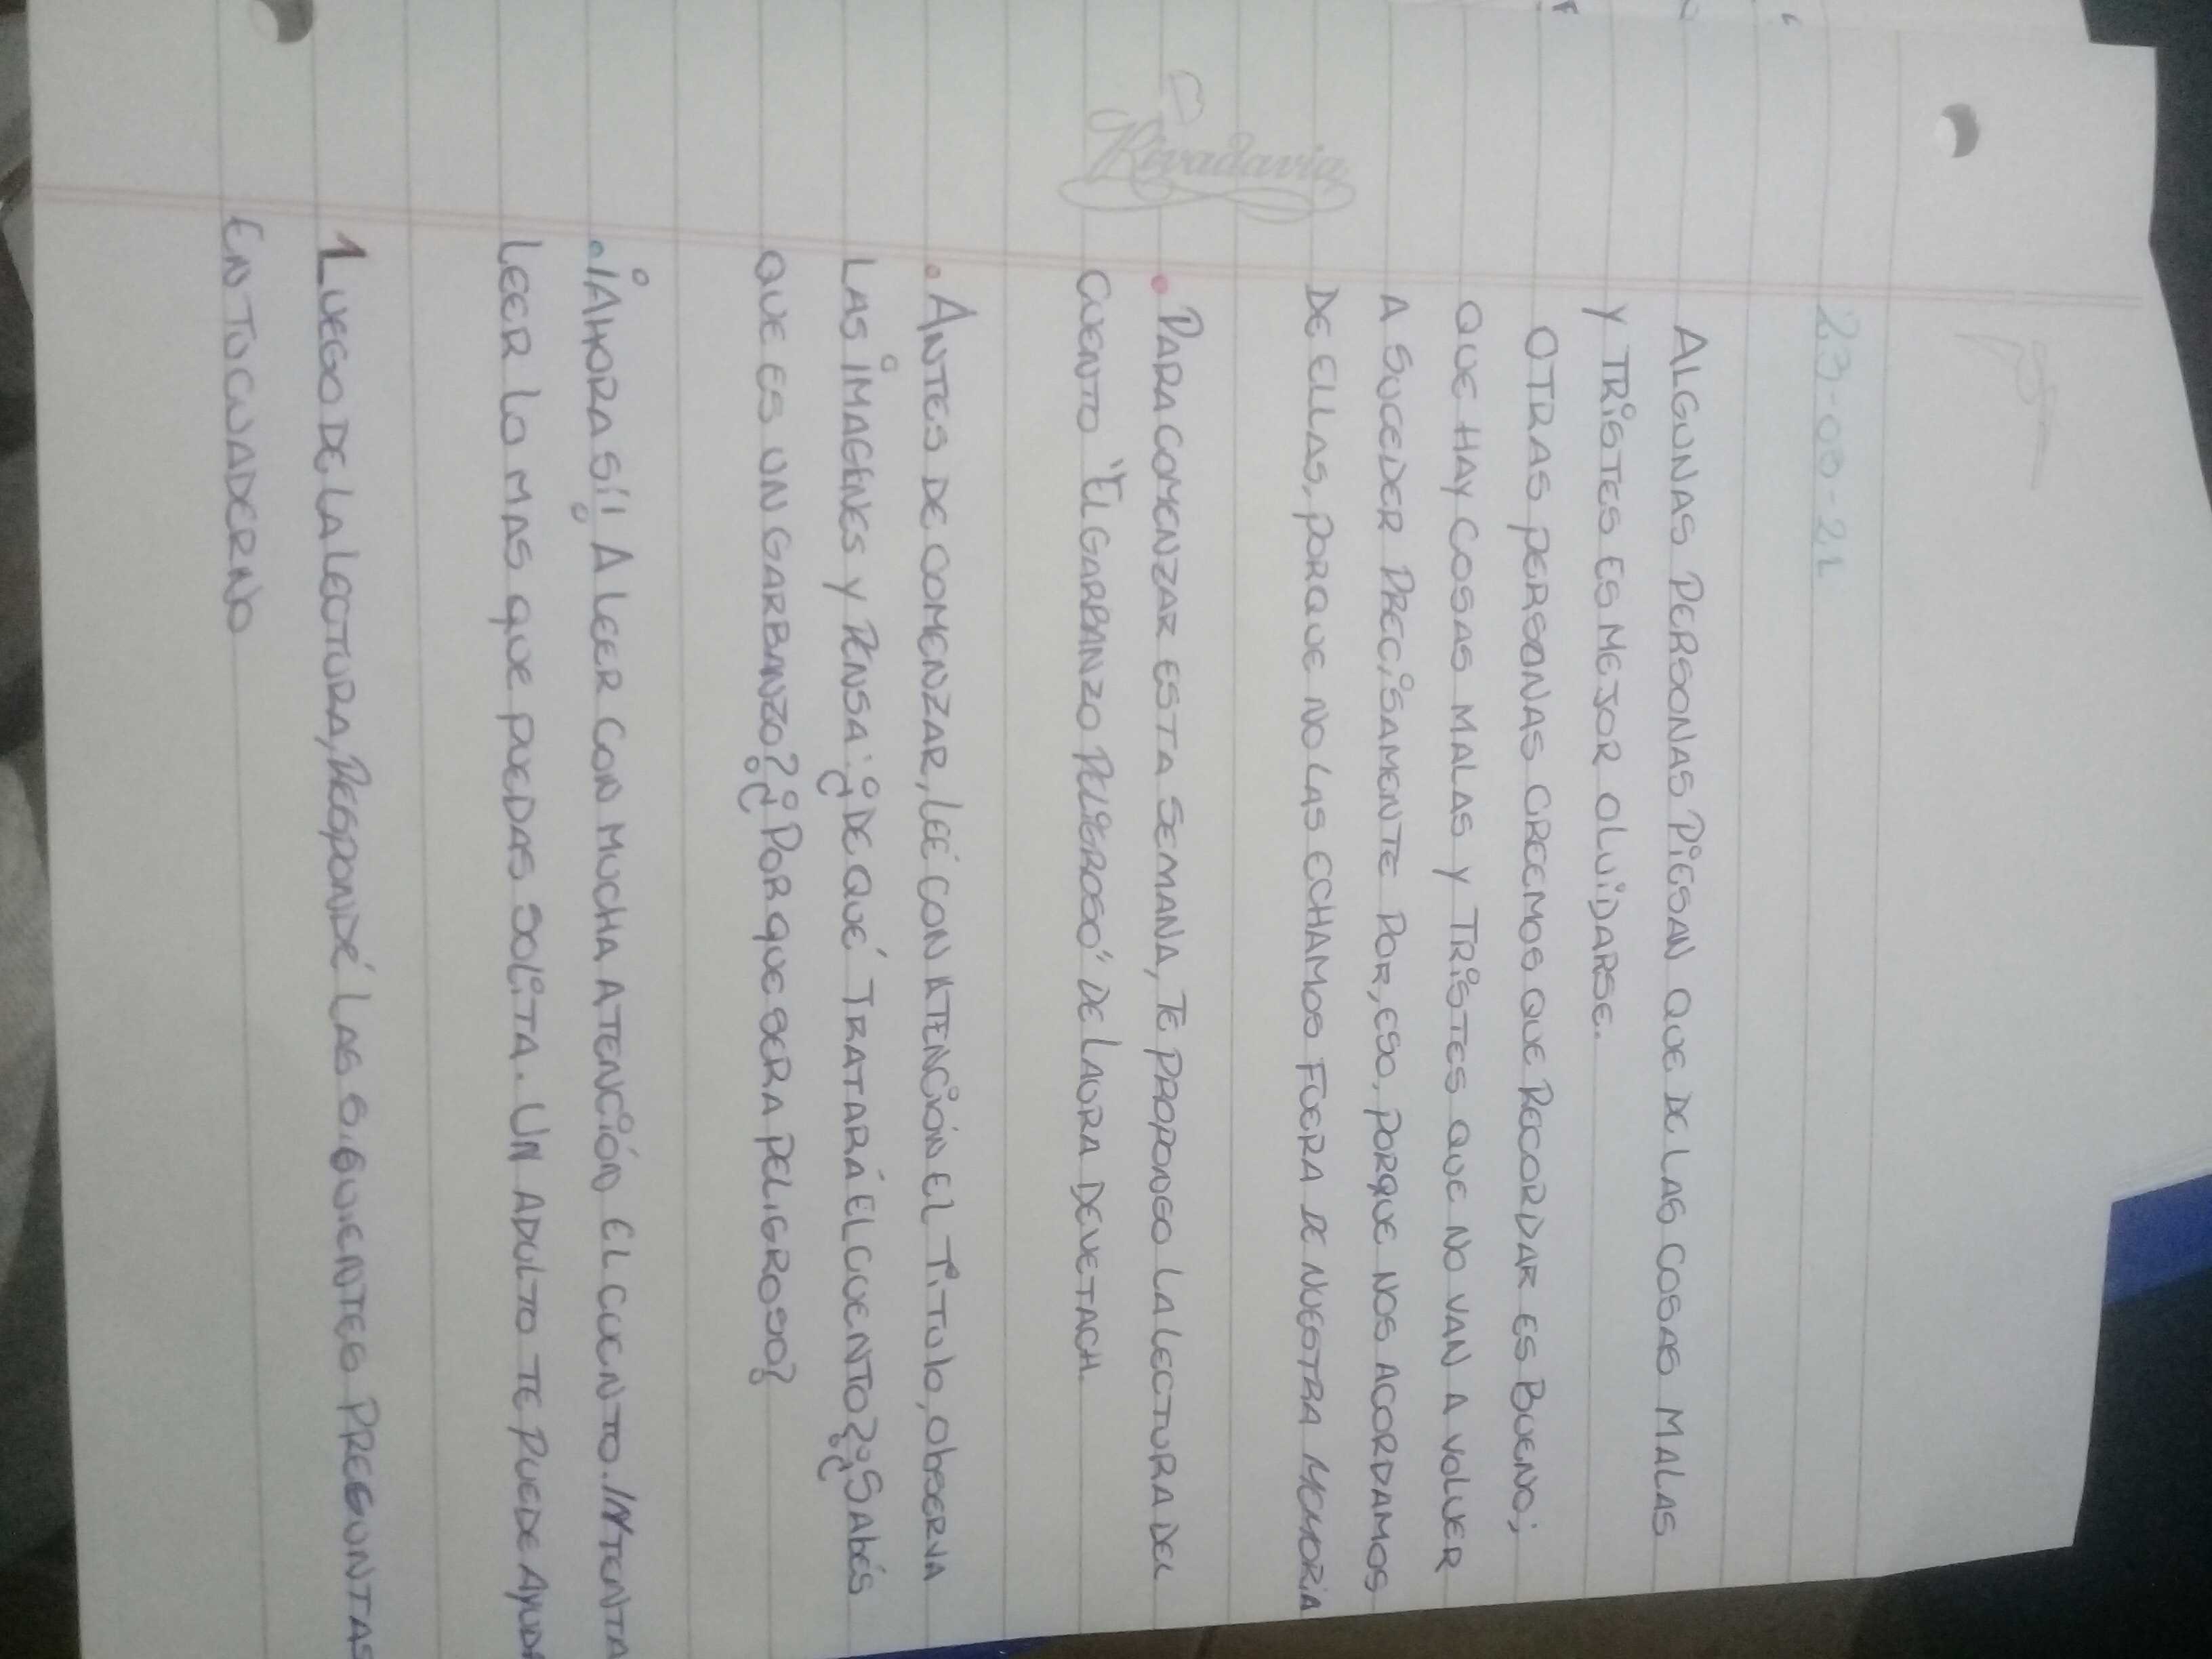 23-03-21
ALGUNAS PERSONAS PIESAN QUE DE LAS COSAS MALAS
Y TRISTES ES MEJOR OLVIDARSE.
OTRAS PERSONAS CREEMOS QUE RECORDAR ES BUENO;
QUE HAY COSAS MALAS Y TRISTES QUE NO VAN A VOLVER
A SUCEDER PRECISAMENTE POR, ESO, PORQUE NOS ACORDAMOS
DE ELLAS, PORQUE NO LAS ECHAMOS FUERA DE NUESTRA MEMORIA
Rivadavia
• PARA COMENZAR ESTA SEMANA, TE PROPONGO LA LECTURA DEL
CUENTO "EL GARBANZO PELIGROSO" DE LAURA DEVETACH.
• ANTES DE COMENZAR, LEÉ CON ATENCIÓN EL TITULO, OBSERVA
LAS IMAGENES Y PENSA: ¿DE QUÉ TRATARÁ EL CUENTO? ¿SABÉS
QUE ES UN GARBANZO? ¿POR QUE SERA PELIGROSO?
• ¡AHORA SI! A LEER CON MUCHA ATENCIÓN EL CUENTO. INTENTA
LEER LO MAS QUE PUEDAS SOLITA. UN ADULTO TE PUEDE AYUDA
1 LUEGO DE LA LECTURA, RESPONDÉ LAS SIGUIENTES PREGUNTAS
EN TU CUADERNO